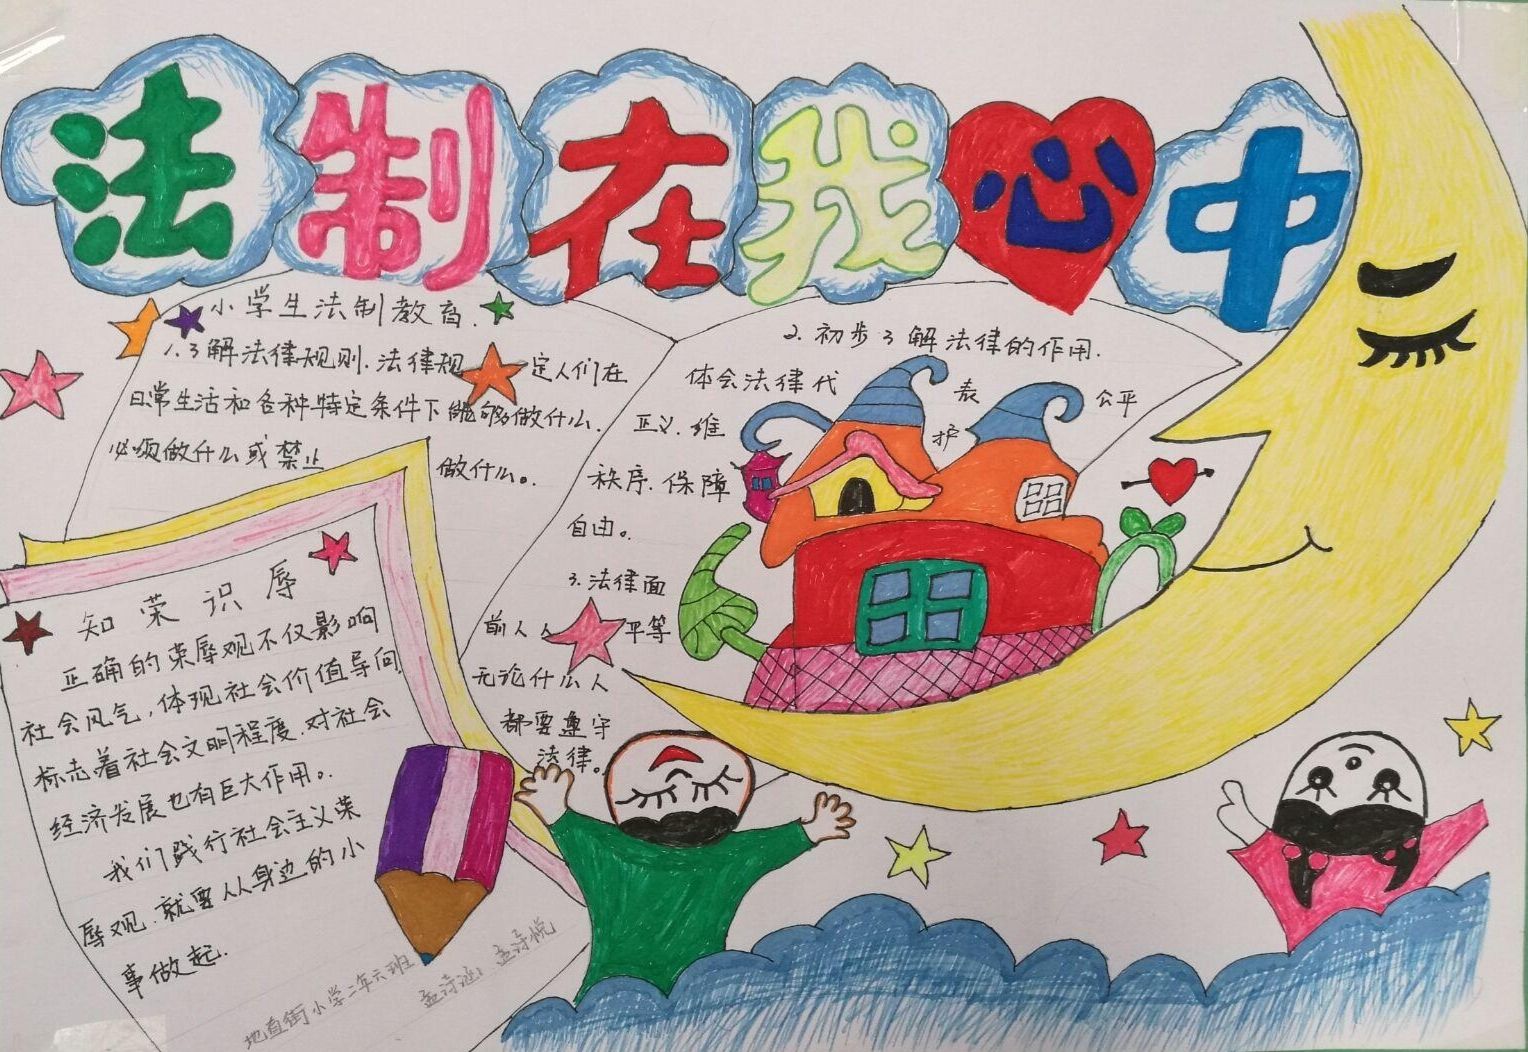 法制在我心中
小学生法制教育.
1.了解法律规则.法律规定人们在
日常生活和各种特定条件下能够做什么.
必须做什么或禁止做什么。
2.初步了解法律的作用.
体会法律代表公平
正义.维护
秩序.保障
自由。
3.法律面
前人人平等
无论什么人
都要遵守
法律。
知荣识辱
正确的荣辱观不仅影响
社会风气,体现社会价值导向
标志着社会文明程度.对社会
经济发展也有巨大作用。
我们践行社会主义荣
辱观.就要从身边的小
事做起.
地直街小学二年六班
孟诗涵 孟诗悦